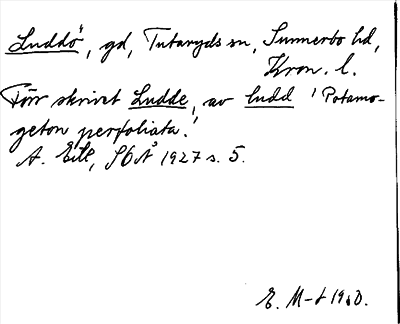 Luddö, gd, Tutaryds sn, Sunnerbo hd,
Kron. l.
Förr skrivet Ludde, av ludd 'Potamo-
geton perfoliata.'
A. Eile, SOÅ 1927 s. 5.
E. M-t 19